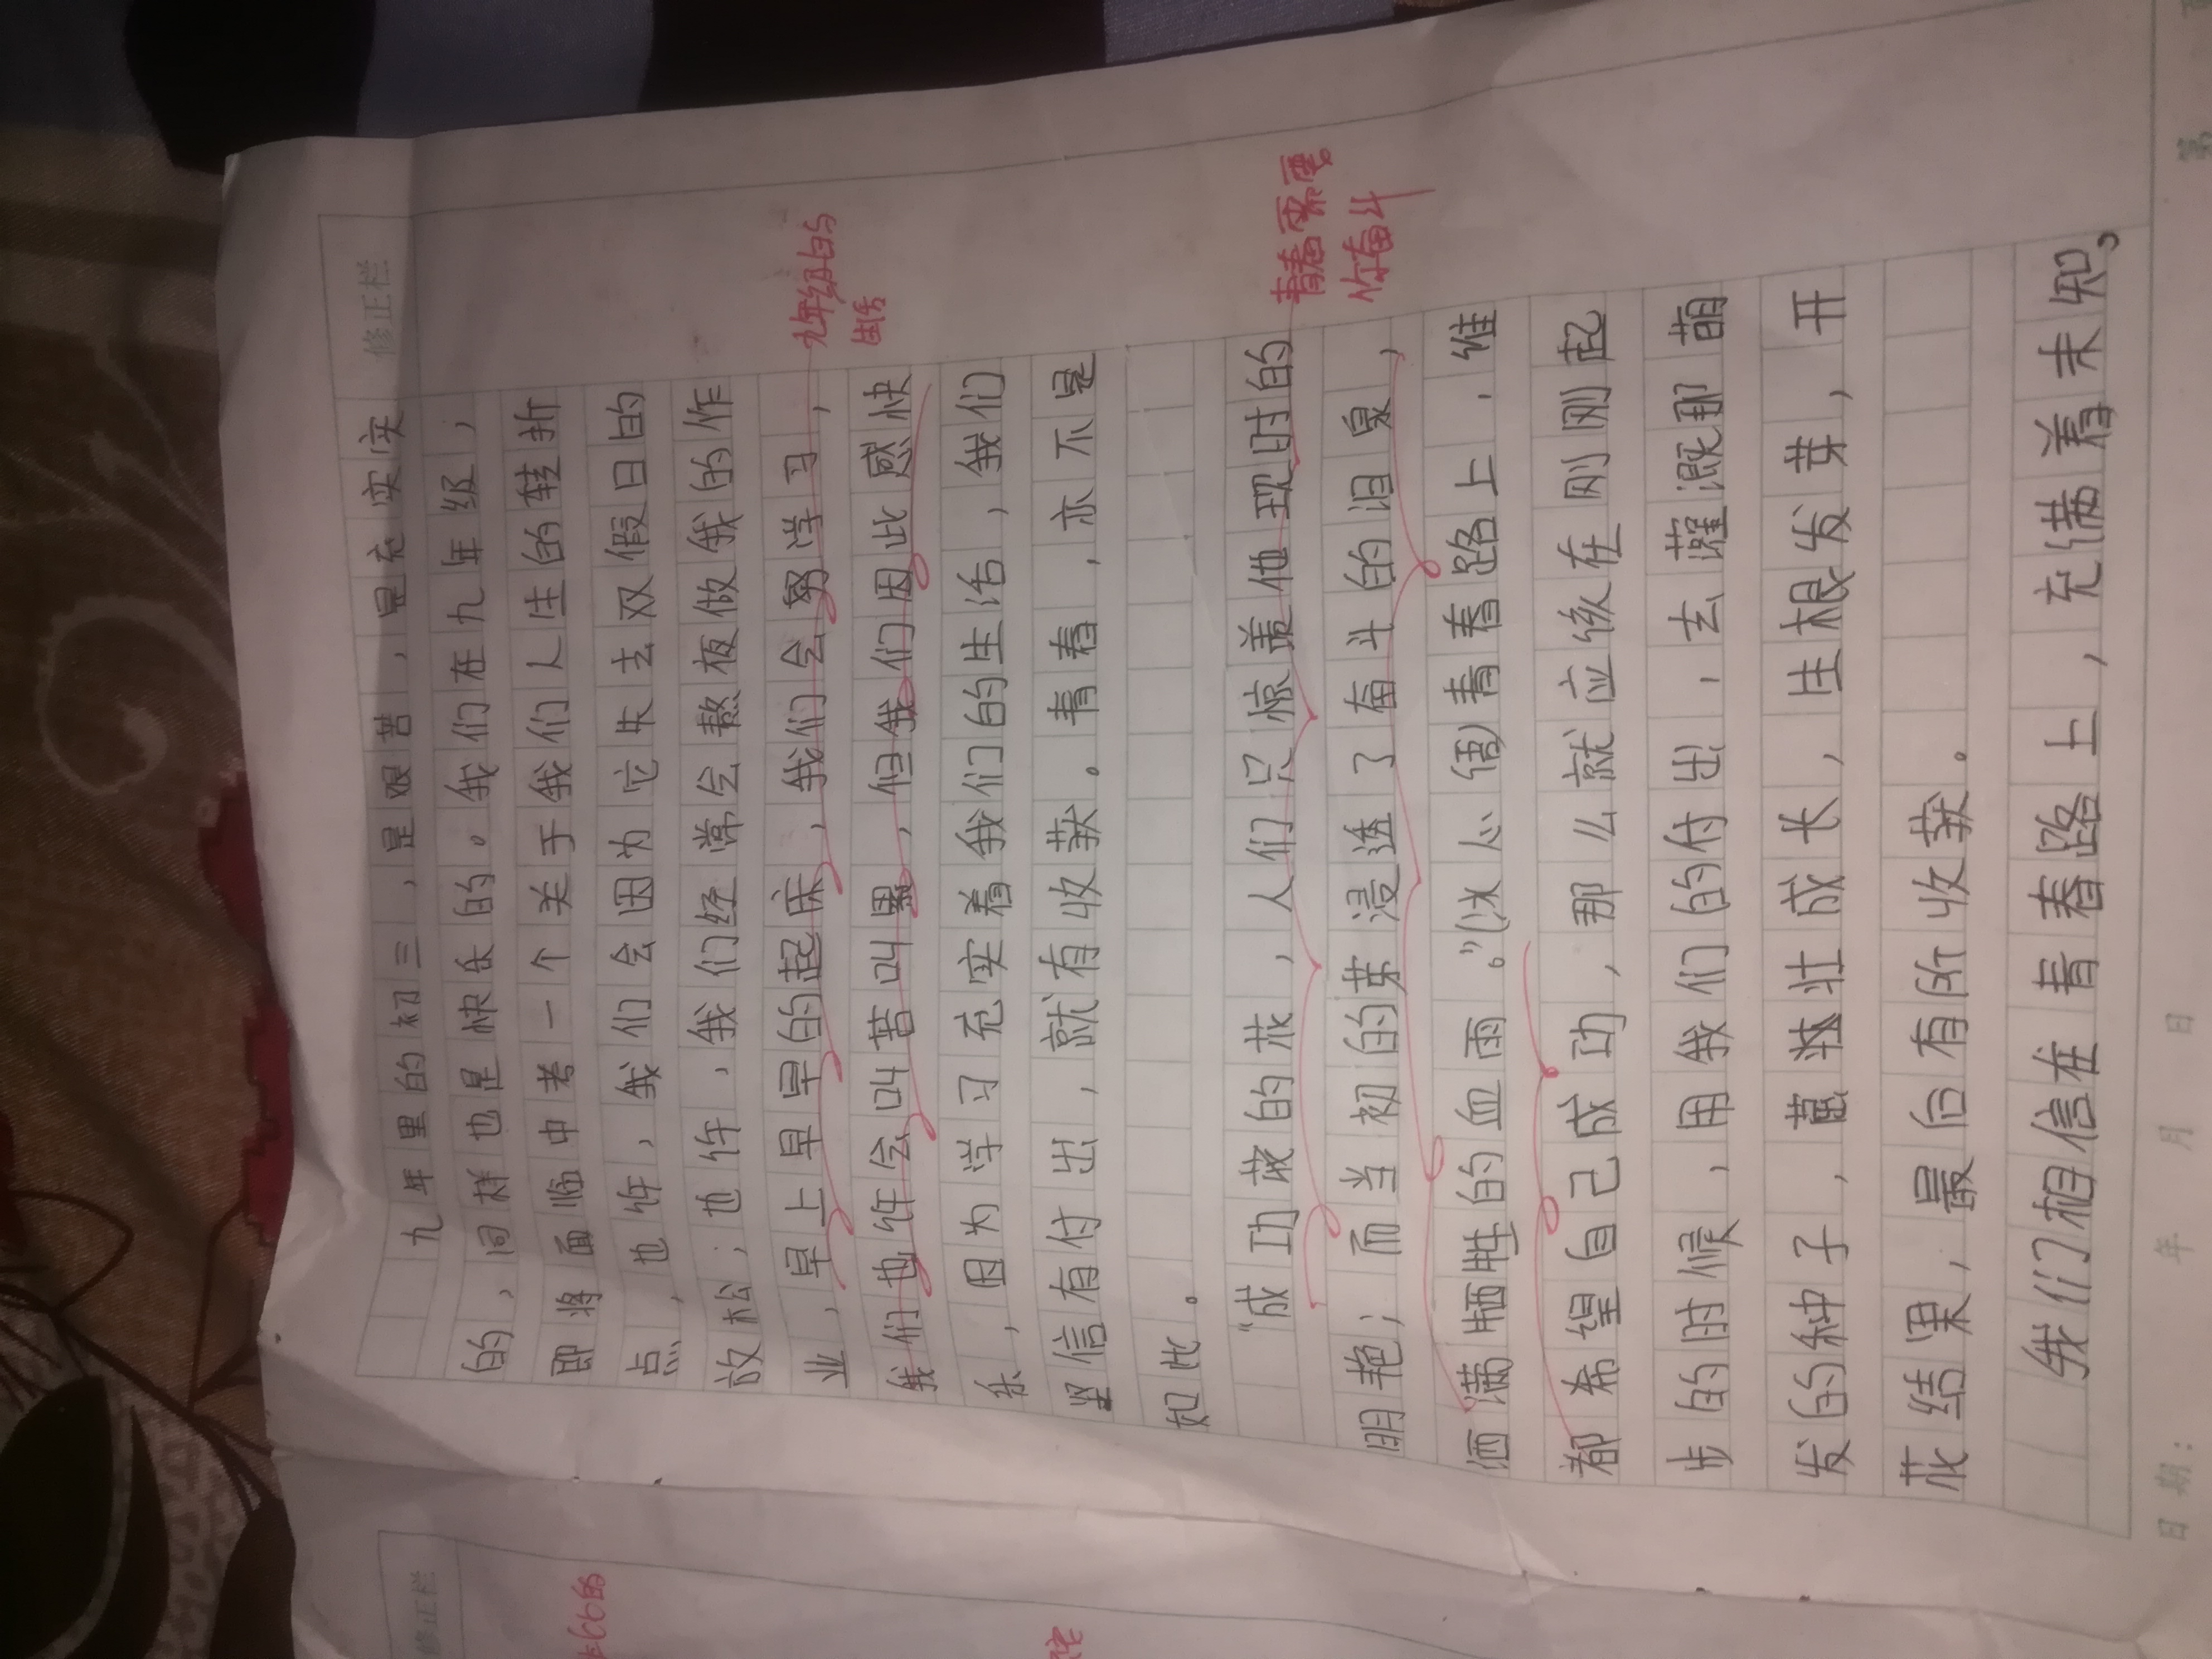 修正栏
九年里的初三,是艰苦,是充实实
的,同样也是快乐的。我们在九年级,
即将面临中考一个关于我们人生的转折
点,也许,我们会因为它失去双假日的
放松;也许,我们经常会熬夜做我的作
业,早上早早的起床,我们会努学习,
九年级的
生活
我们也许会叫苦叫累,但我们因此感快
乐,因为学习充实着我们的生活,我们
坚信有付出,就有收获。青春,亦不是
如此。
“成功花的花,人们只惊羡他现时的
青春需要
你奋斗
明艳;而当初的芽浸透了奋斗的泪泉,
洒满牺牲的血雨。”(冰心语)青春路上,谁
都希望自己成功,那么就应该在刚刚起
步的时候,用我们的付出,去灌溉那萌
发的种子,茁壮成长,生根发芽,开
花结果,最后有所收获。
我们相信在青春路上,充满着未知,
日期: 年 月 日
第
修正栏